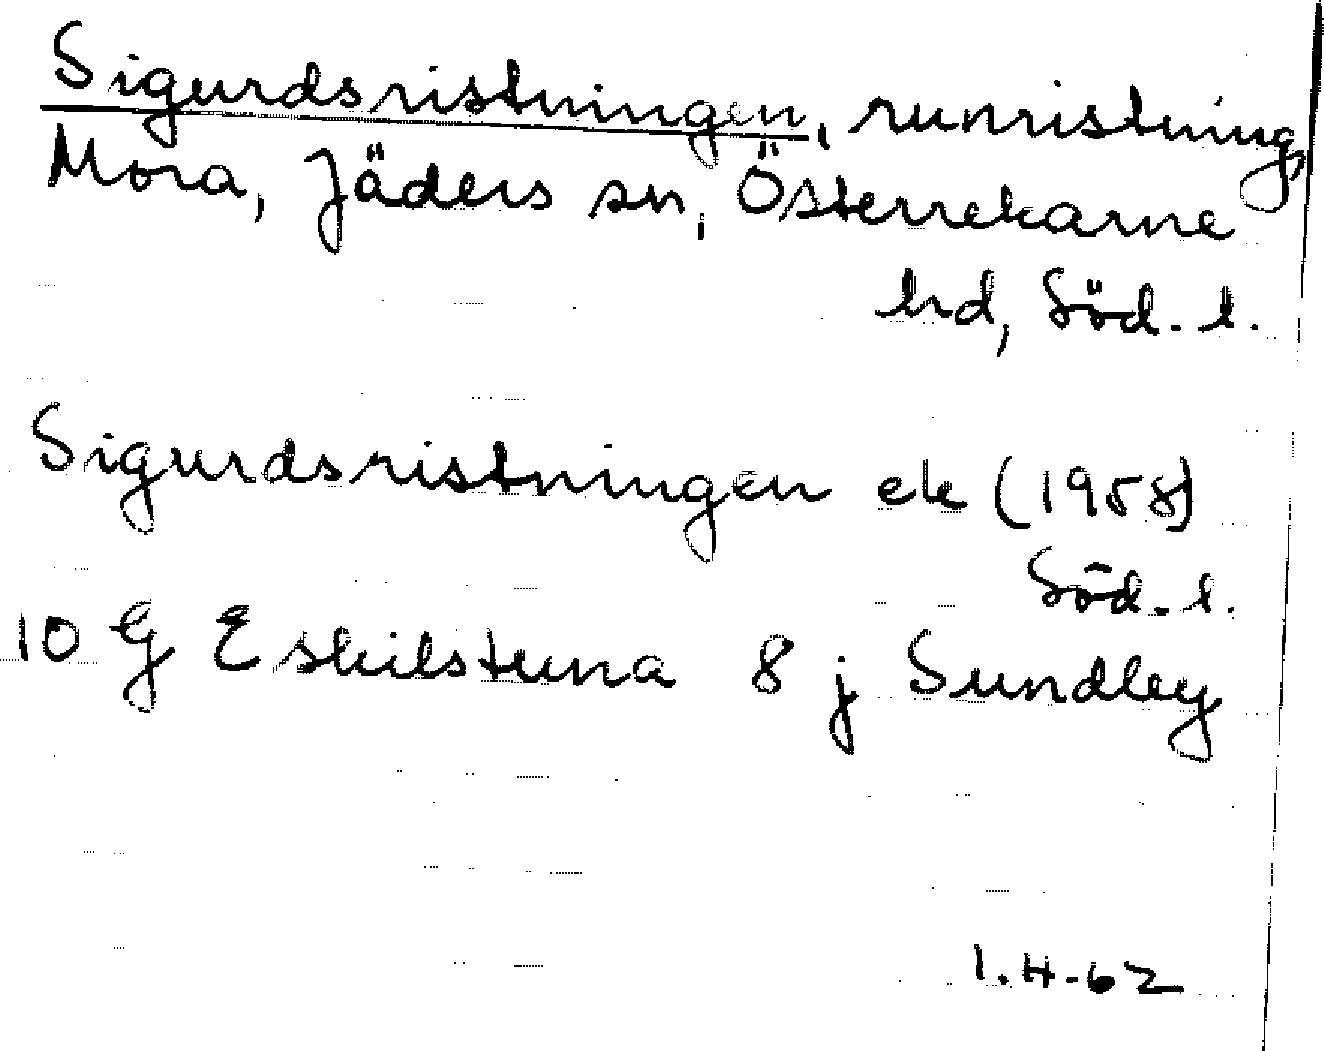 Sigurdsristningen, runristning,
Mora, Jäders sn, Österrekarne
hd, Söd. l.
Sigurdsristningen ek (1958)
Söd. l.
10 G Eskilstuna 8 j Sundley
1.4.62